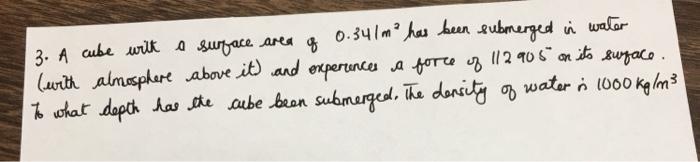 3. A cube with a surface area of 0.341m² has been submerged in water
(with atmosphere above it) and experiences a force of 112 905 on its surface.
To what depth has the cube been submerged. The density of water is 1000 kg/m³